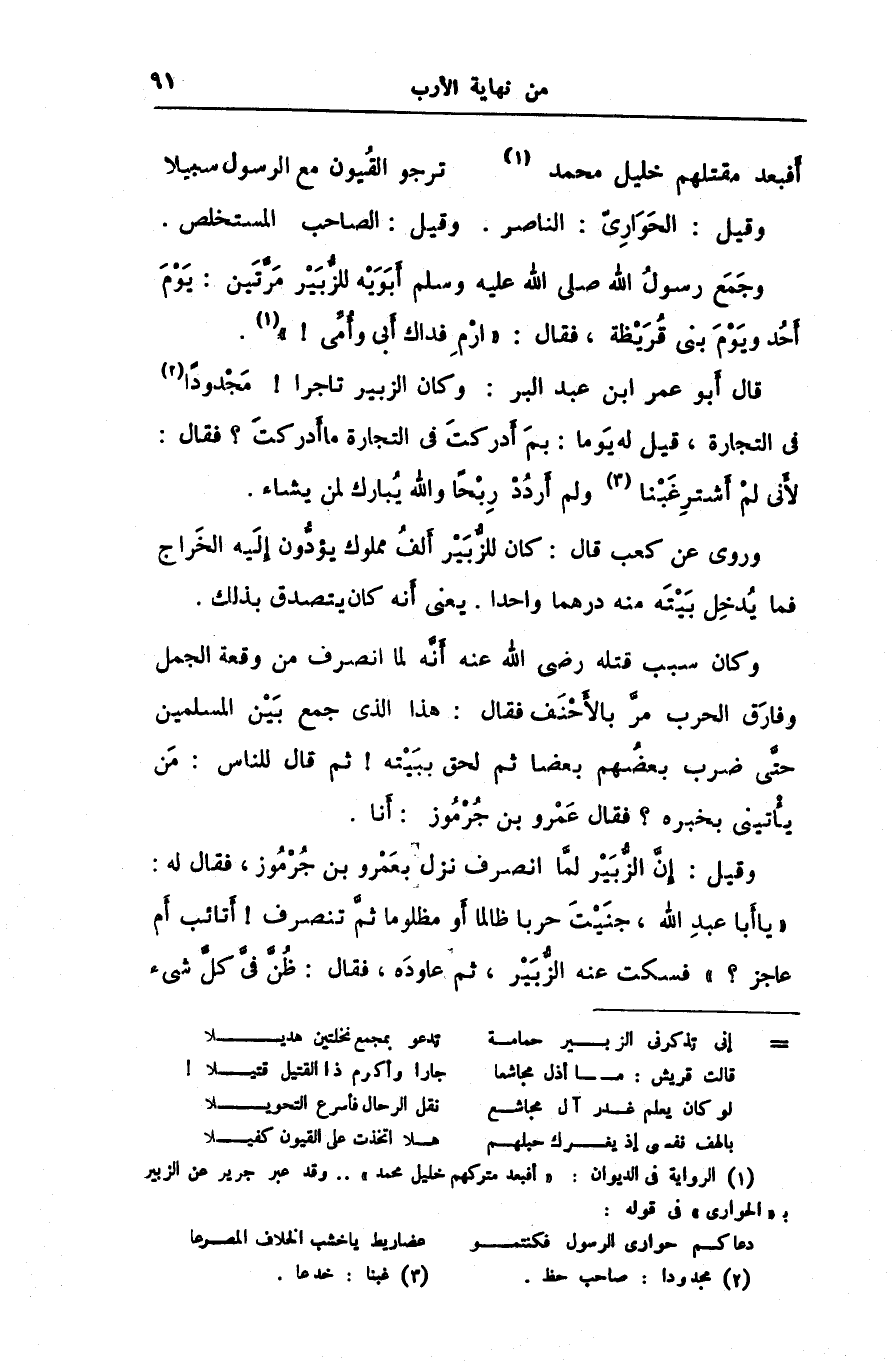 من نهاية الأرب ٩١
أفبعد مقتلهم خليل محمد (١) ترجو القُيون مع الرسول سبيلا
وقيل : الحَوَارِىّ : الناصر . وقيل : الصاحب المستخلص .
وجَمَع رسولُ الله صلى الله عليه وسلم أَبَوَيْه للزُّبَيْر مَرَّتَين : يَوْمَ
أُحُد ويَوْمَ بنى قُرَيْظة ، فقال : « ارْمِ فداك أَبى وأُمِّى ! »(١) .
قال أَبو عمر ابن عبد البر : وكان الزبير تاجرا ! مَجْدودًا(٢)
فى التجارة ، قيل له يَوما : بمَ أَدركتَ فى التجارة ماأَدركتَ ؟ فقال :
لأَنى لمْ أَشترِ غَبْنا (٣) ولم أَردُدْ رِبْحًا والله يُبارك لمن يشاء .
وروى عن كعب قال : كان للزُّبَيْر أَلفُ مملوك يؤدُّون إِلَيه الخَراج
فما يُدخِل بَيْتَه منه درهما واحدا . يعنى أَنه كان يتصدق بذلك .
وكان سبب قتله رضى الله عنه أَنَّه لما انصرف من وقعة الجمل
وفارَق الحرب مرَّ بالأَحْنَف فقال : هذا الذى جمع بَيْن المسلمين
حتَّى ضرب بعضُهم بعضا ثم لحق ببَيْته ! ثم قال للناس : مَن
يأْتينى بخبره ؟ فقال عَمْرو بن جُرْمُوز : أَنا .
وقيل : إِنَّ الزُّبَيْر لمَّا انصرف نزل بعَمْرو بن جُرْمُوز ، فقال له :
« ياأَبا عبدِ الله ، جنَيْتَ حربا ظالما أَو مظلوما ثمَّ تنصرف ! أَتائب أَم
عاجز ؟ » فسكت عنه الزُّبَيْر ، ثم عاودَه ، فقال : ظُنَّ فىَّ كلَّ شىء
= إنى تذكرنى الزبـــير حمامـة تدعو بمجمع نخلتين هديـــــلا
قالت قريش : مـــا أذل مجاشعا جارا وأكرم ذا القتيل قتيـــلا !
لو كان يعلم غـــدر آل مجاشـــع نقل الرحال فأسرع التحويـــــلا
يالهف نفسى إذ يغـــرك حبلهـــم هـــلا اتخذت على القيون كفيـــلا
(١) الرواية فى الديوان : « أفبعد متركهم خليل محمد » .. وقد عبر جرير عن الزبير
بـ « الحوارى » فى قوله :
دعاكـــم حوارى الرسول فكنتمـــو عضاريط ياخشب الخلاف المصرعا
(٢) مجدودا : صاحب حظ . (٣) غبنا : خدعا .